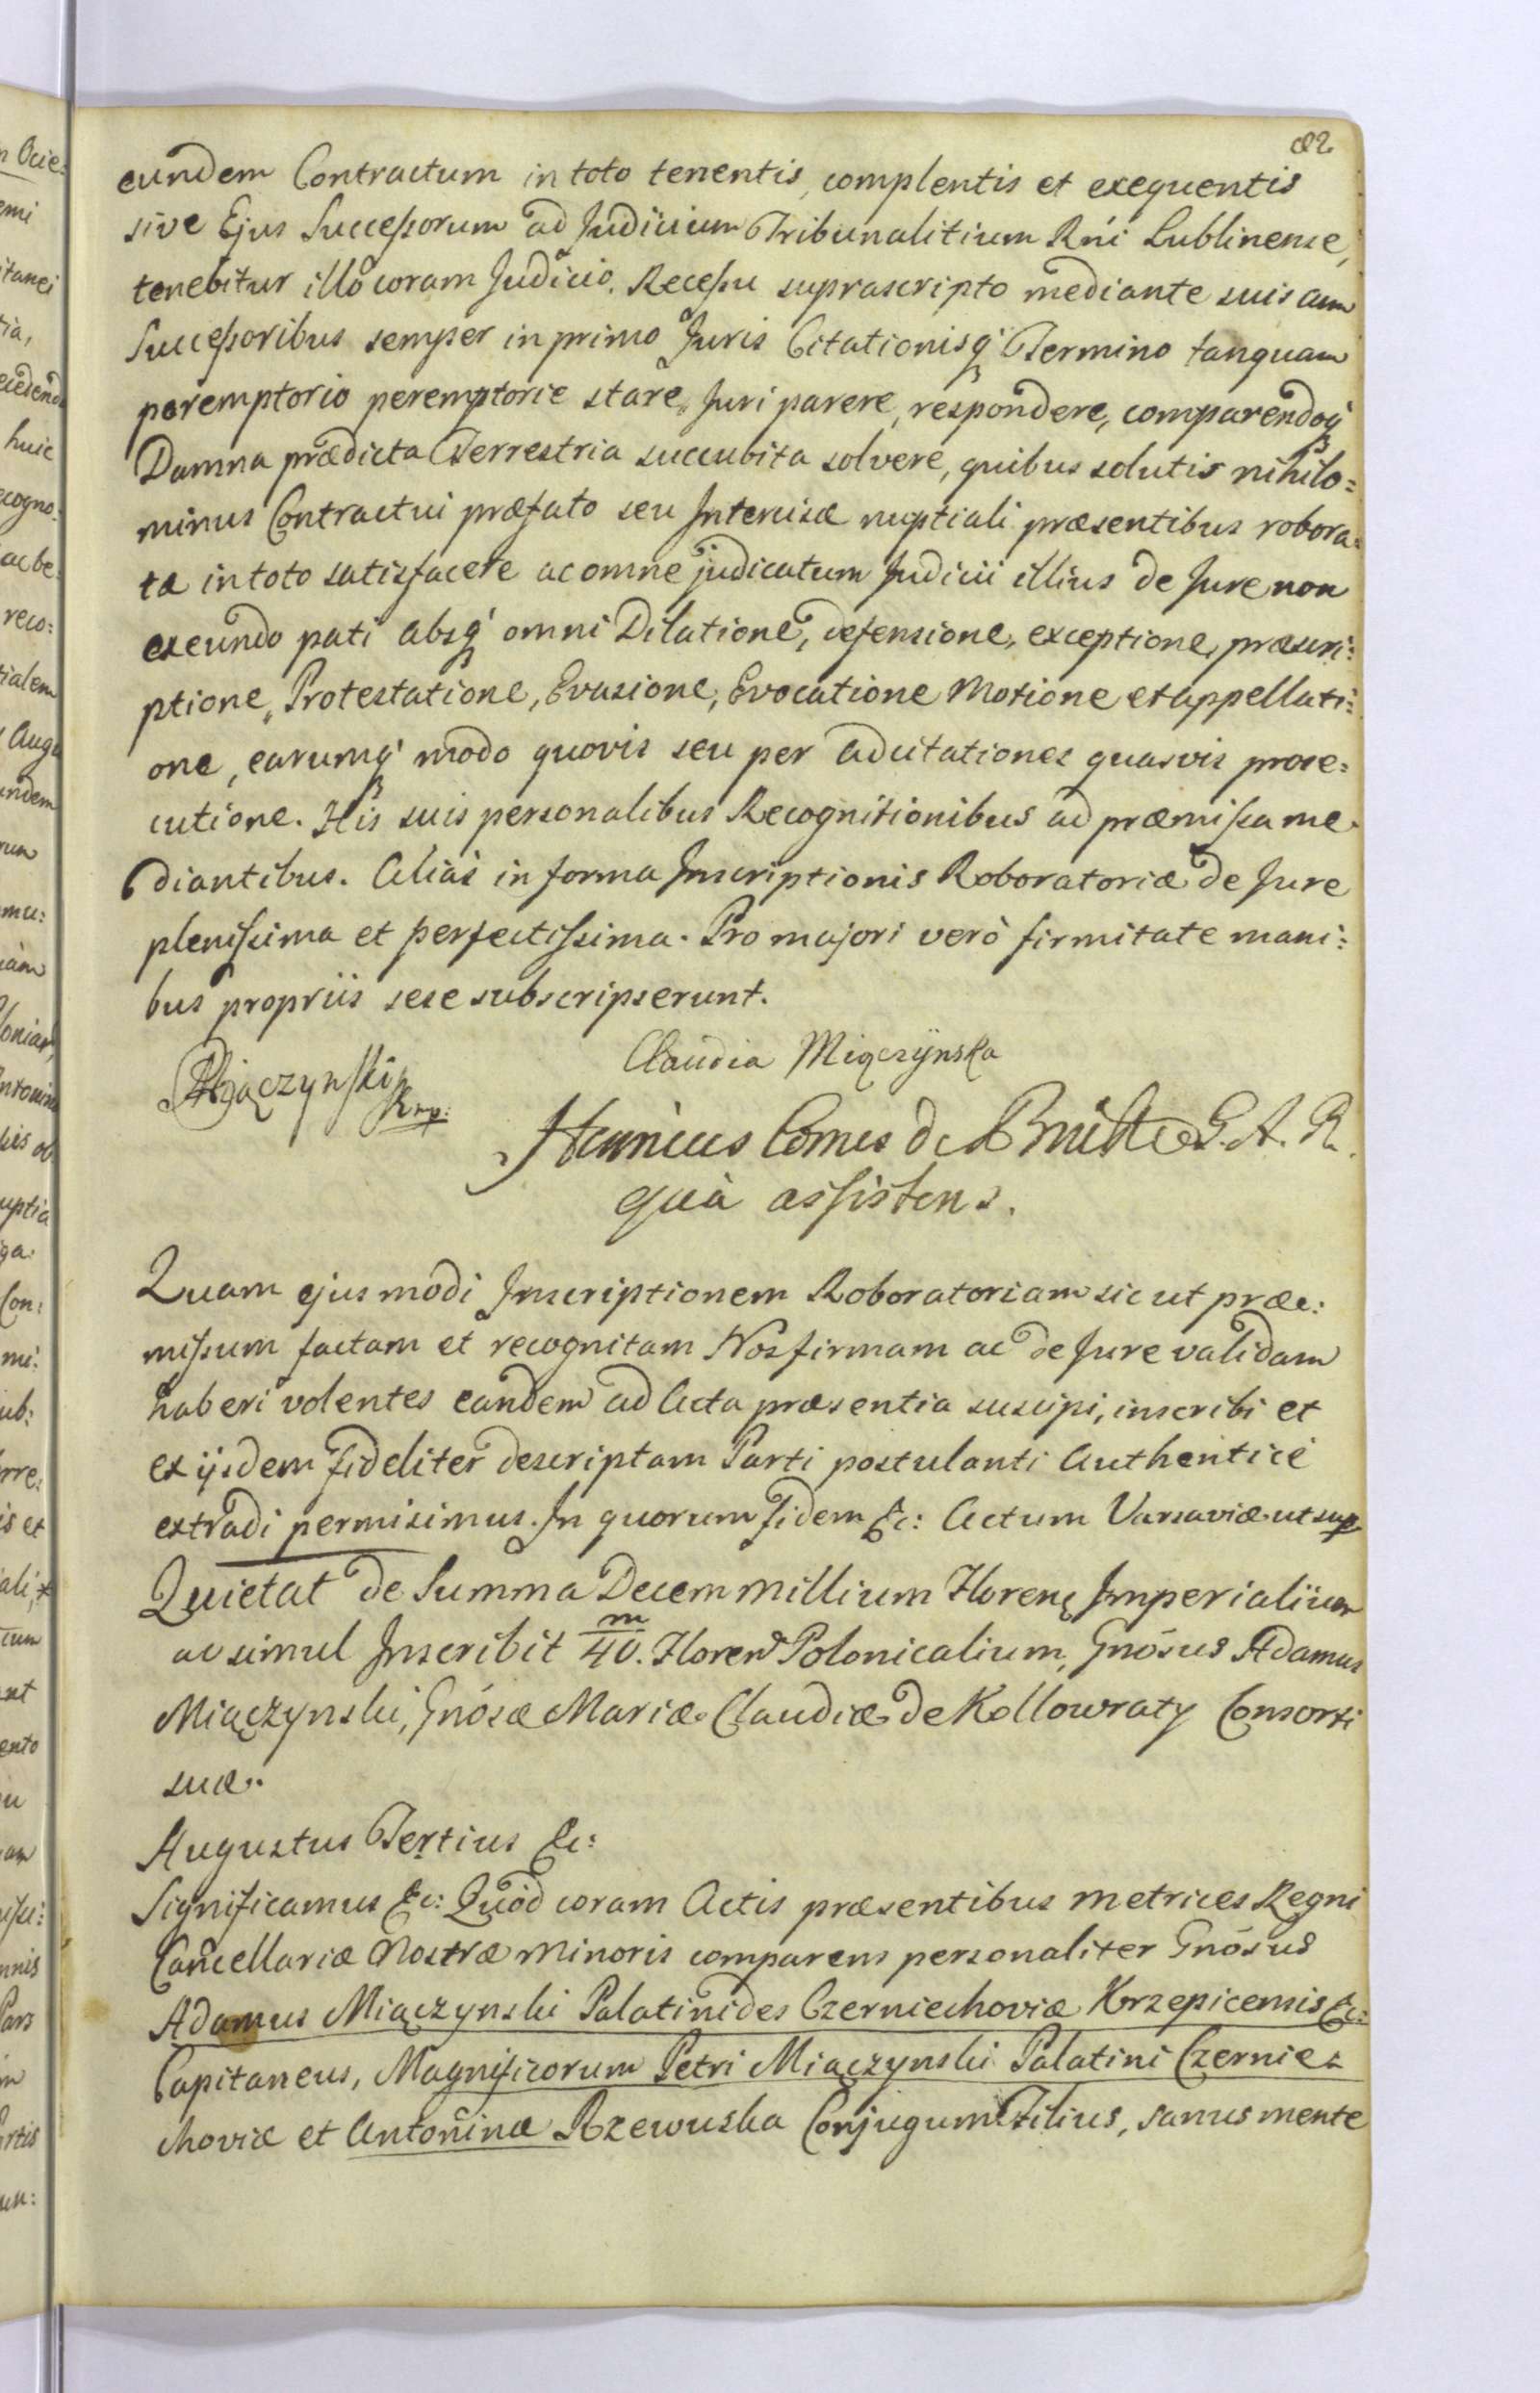 82
eundem Contractum in toto tenentis, complentis et exequentis
sive Ejus Successorum ad Judicium Tribunalitium Rńi Lublinense,
tenebitur illo coram Judicio. Recessu suprascripto mediante suis cum
Successoribus semper in primo Juris Citationisq́ Termino tanquam
peremptorio peremptorie stare, Juri parere, respondere, comparendoq́
Damna prædicta Terrestria succubita solvere, quibus solutis nihilo=
minus Contractui præfato seu Intercisæ nuptiali præsentibus robora=
tæ in toto satisfacere ac omne judicatum Judicii illius de Jure non
exeundo pati absq́ omni Dilatione, defensione, exceptione, præscri=
ptione, Protestatione, Evasione, Evocatione Motione et appellati=
one, earumq́ modo quovis seu per adcitationes quasvis prose=
cutione. His suis personalibus Recognitionibus ad præmissa me
diantibus. Alias in forma Inscriptionis Roboratoriæ de Jure
plenissima et perfectissima. Pro majori verò firmitate mani=
bus propriis sese subscripserunt.
Claudia Miączÿnska
Miączynski mp:
Henricus Comes de Bruhl G. A. R.
quà assistens.
Quam ejusmodi Inscriptionem Roboratoriam sic ut præ=
missum factam et recognitam Nos firmam ac de Jure validam
haberi volentes eandem ad Acta præsentia suscipi, inscribi et
ex ijsdem fideliter descriptam Parti postulanti Authenticè
extradi permisimus. In quorum fidem &c: Actum Varsaviæ ut sup
Quietat de Summa Decem millium Floren Imperialium
ac simul Inscribit 40.m Floren Polonicalium, Gnósus Adamus
Miączynski, Gnósæ Mariæ Claudiæ de Kollowraty Consorti
suæ.
Augustus Tertius &c:
Significamus &c: Quód coram Actis præsentibus metrices Regni
Cancellariæ Nostræ Minoris comparens personaliter Gnósus
Adamus Miączynski Palatinides Czerniechoviæ Krzepicensis &c:
Capitaneus, Magnificorum Petri Miączynski Palatini Czernie=
choviæ et Antoninæ Rzewuska Conjugum Filius, sanus mente